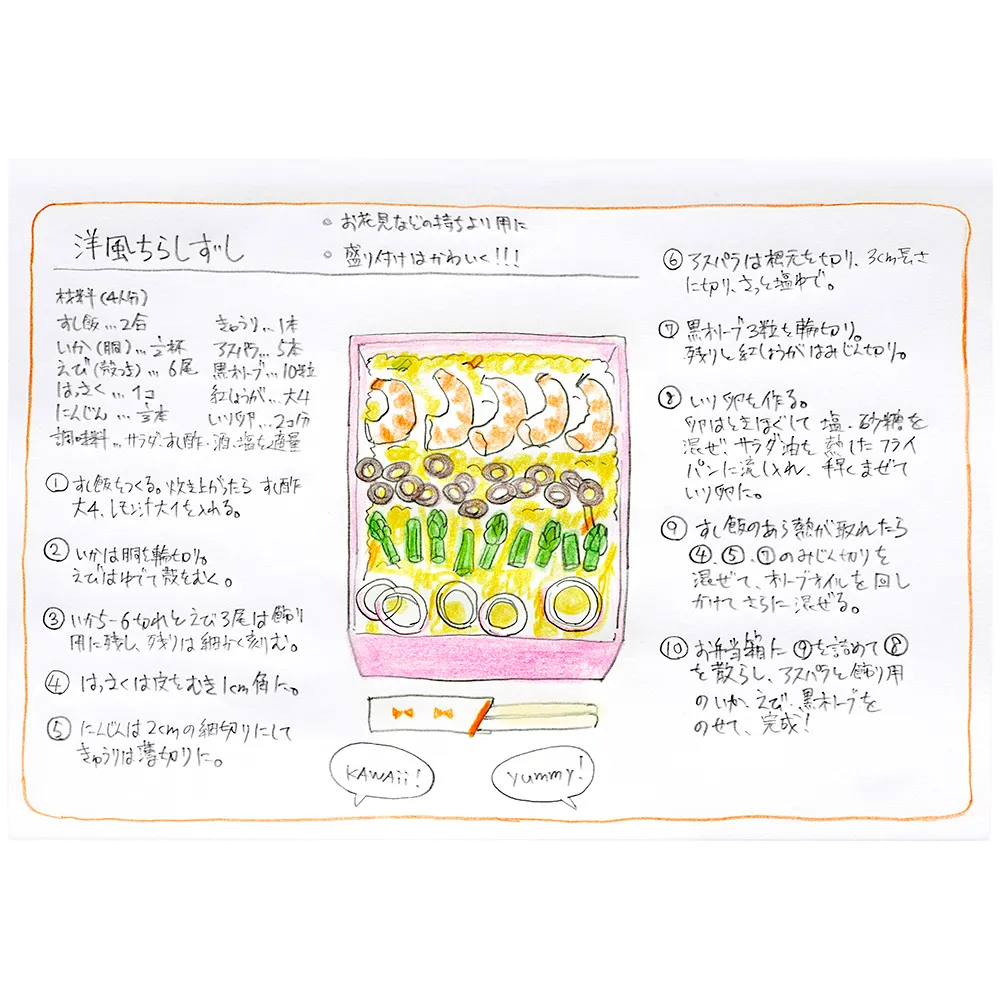 洋風ちらしずし
◦ お花見などの持ちより用に
◦ 盛り付けはかわいく!!!
材料(4人分)
すし飯…2合
いか(胴)…1/2杯
えび(殻つき)…6尾
はっさく…1コ
にんじん…1/3本
きゅうり…1本
アスパラ…5本
黒オリーブ…10粒
紅しょうが…大4
いり卵…2コ分
調味料…サラダ・すし酢・酒・塩を適量
① すし飯をつくる。炊き上がたら すし酢
大4、レモン汁大1を入れる。
② いかは胴を輪切り。
えびはゆでて殻をむく。
③ いか5-6切れとえび3尾は飾り
用に残し、残りは細かく刻む。
④ はっさくは皮をむき1cm角に。
⑤ にんじんは2cmの細切りにして
きゅうりは薄切りに。
KAWAii!
yummy!
⑥ アスパラは根元を切り、3cm長さ
に切り、さっと塩ゆで。
⑦ 黒オリーブ3粒を輪切り。
残りと紅しょうがはみじん切り。
⑧ いり卵を作る。
卵はときほぐして 塩・砂糖を
混ぜ、サラダ油を熱したフライ
パンに流し入れ、手早くまぜて
いり卵に。
⑨ すし飯のあら熱が取れたら
④、⑤、⑦のみじん切りを
混ぜて、オリーブオイルを回し
かけてさらに混ぜる。
⑩ お弁当箱に⑨を詰めて⑧
を散らし、アスパラと飾り用
のいか、えび・黒オリーブを
のせて、完成!